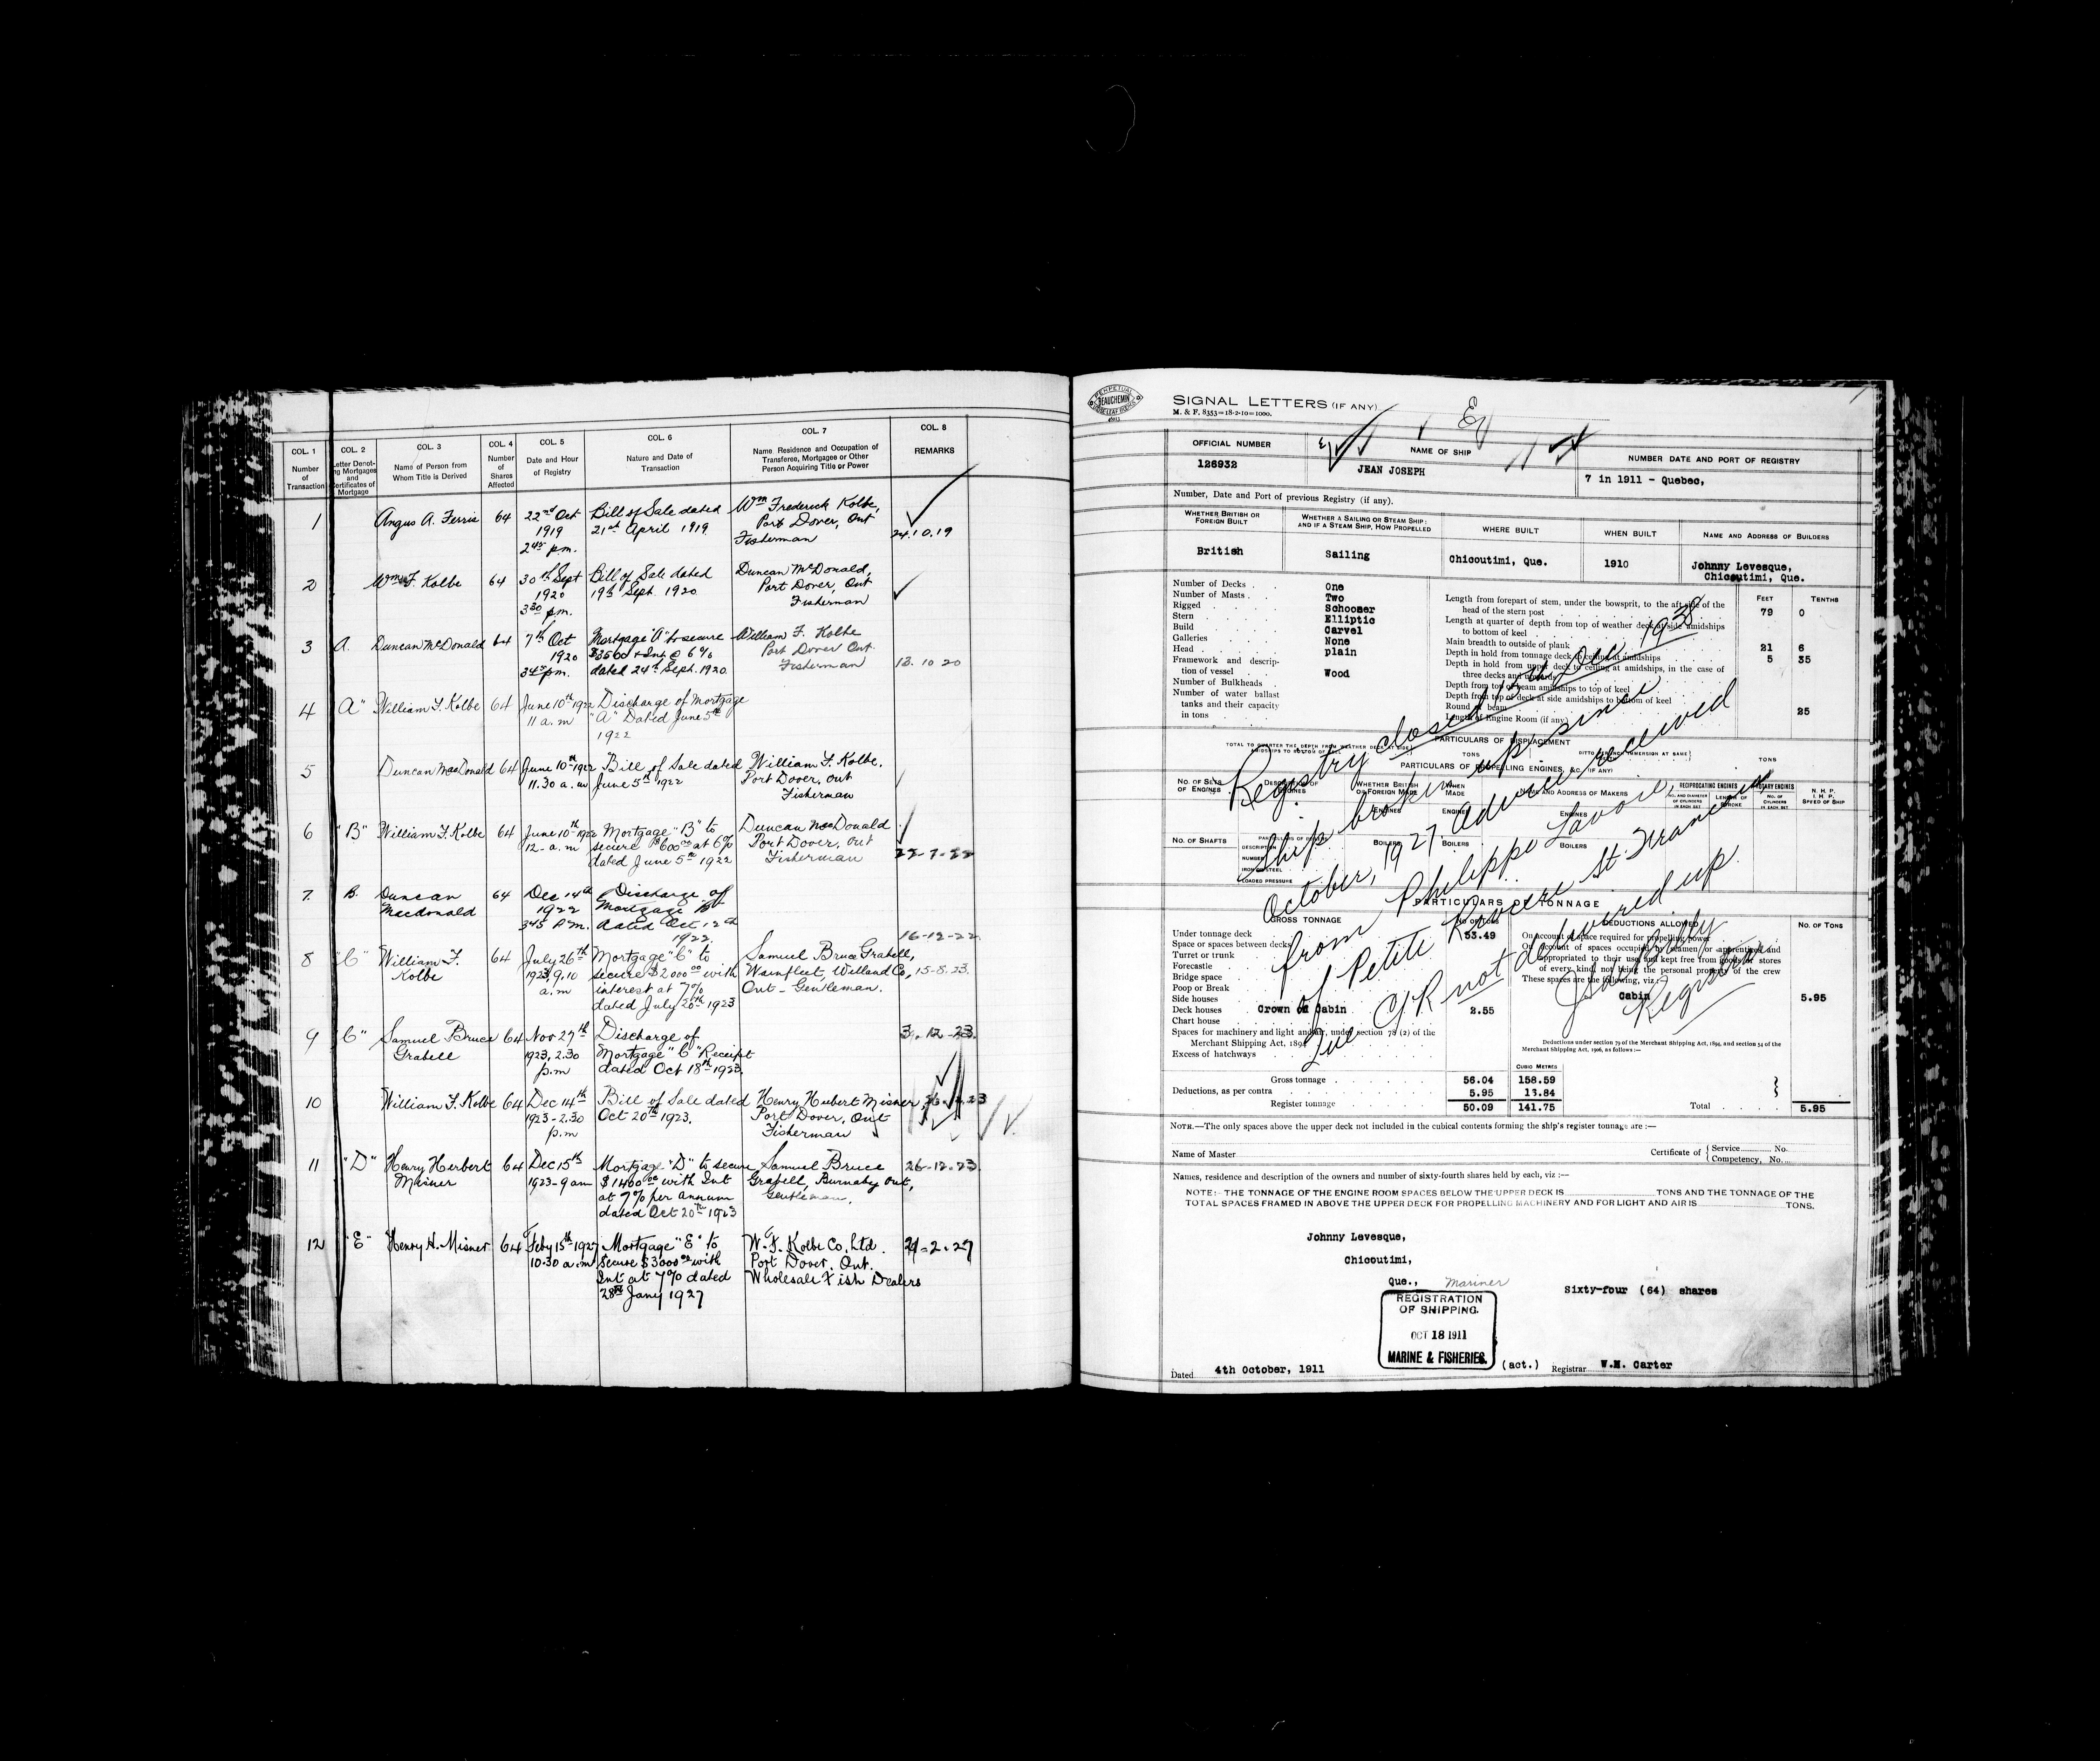 COL. 1 COL. 2 COL. 3 COL. 4 COL. 5 COL. 6 COL. 7 COL. 8
Number of Transaction
Letter Denoting Mortgages and Certificates of Mortgage
Name of Person from Whom Title is Derived
Number of Shares Affected
Date and Hour of Registry
Nature and Date of Transaction
Name Residence and Occupation of Transferee, Mortgagee or Other Person Acquiring Title or Power
REMARKS
1 Angus A. Ferris 64 22nd Oct Bill of Sale dated Wm Frederick Kolbe,
1919 21st April 1919 Port Dover, Ont
2 45 p.m. Fisherman 24.10.19
2 Wm F. Kolbe 64 30th Sept Bill of Sale dated Duncan McDonald,
1920 19th Sept. 1920 Port Dover, Ont
3 30 p.m. Fisherman
3 A. Duncan McDonald 64 7th Oct Mortgage "A" to secure William F. Kolbe
1920 $3500 + Int @ 6% Port Dover Ont.
3 45 p.m. dated 24th Sept. 1920. Fisherman 13.10.20
4 A" William F. Kolbe 64 June 10th 1922 Discharge of Mortgage
11 a.m "A" Dated June 5th
1922
5 Duncan MacDonald 64 June 10th 1922 Bill of Sale dated William F. Kolbe.
11.30 a.m June 5th 1922 Port Dover, Ont
Fisherman
6 "B" William F. Kolbe 64 June 10th 1922 Mortgage "B" to Duncan MacDonald
12 - a.m secure $600.00 at 6% Port Dover, Ont
dated June 5th 1922 Fisherman 22-7-22
7. B. Duncan 64 Dec 14th Discharge of
Macdonald 1922 Mortgage B
3 45 P.M. dated Oct 12th
1922. 16-12-22
8 "C" William F. 64 July 26th Mortgage "C" to Samuel Bruce Grabell,
Kolbe 1923, 9.10 secure $2000.00 with Wainfleet, Welland Co, 15-8.23.
a.m interest at 7% Ont - Gentleman.
dated July 20th 1923
9 "C" Samuel Bruce 64 Nov 27th Discharge of 3.12-23.
Grabell 1923, 2.30 Mortgage "C" Receipt
p.m dated Oct 18th 1923.
10 William F. Kolbe 64 Dec 14th Bill of Sale dated Henry Herbert Misner,
1923 - 2.30 Oct 20th 1923. Port Dover, Ont
p.m Fisherman
11 "D" Henry Herbert 64 Dec 15th Mortgage "D" to secure Samuel Bruce 26-12-23.
Misner 1923 - 9 am $1400.00 with Int Grabell, Burnaby Ont,
at 7% per annum Gentleman.
dated Oct 20th 1923
12 "E" Henry H. Misner 64 Feby 15th 1927 Mortgage "E" to W. F. Kolbe Co. Ltd. 21-2-27
10.30 a.m secure $3000.00 with Port Dover. Ont.
Int at 7% dated Wholesale Fish Dealers
28th Jany 1927
PERPETUAL BEAUCHEMIN
SIGNAL LETTERS (IF ANY)
M. & F. 8353=18-2-10=1000.
OFFICIAL NUMBER NAME OF SHIP NUMBER DATE AND PORT OF REGISTRY
126932 JEAN JOSEPH 7 in 1911 - Quebec,
Number, Date and Port of previous Registry (if any).
WHETHER BRITISH OR FOREIGN BUILT
WHETHER A SAILING OR STEAM SHIP; AND IF A STEAM SHIP, HOW PROPELLED
WHERE BUILT WHEN BUILT NAME AND ADDRESS OF BUILDERS
British Sailing Chicoutimi, Que. 1910 Johnny Levesque,
Chicoutimi, Que.
FEET TENTHS
Number of Decks One
Number of Masts Two
Rigged Schooner
Stern Elliptic
Build Carvel
Galleries None
Head plain
Framework and description of vessel Wood
Number of Bulkheads
Number of water ballast
tanks and their capacity
in tons
Length from forepart of stem, under the bowsprit, to the aft side of the
head of the stern post 79 0
Length at quarter of depth from top of weather deck at side amidships
to bottom of keel
Main breadth to outside of plank 21 6
Depth in hold from tonnage deck to ceiling at amidships 5 35
Depth in hold from upper deck to ceiling at amidships, in the case of
three decks and upwards
Depth from top of beam amidships to top of keel
Depth from top of deck at side amidships to bottom of keel
Round of beam 25
Length of Engine Room (if any)
PARTICULARS OF DISPLACEMENT
TOTAL TO QUARTER THE DEPTH FROM WEATHER DECK AT SIDE AMIDSHIPS TO BOTTOM OF KEEL TONS TONS
PARTICULARS OF PROPELLING ENGINES, &C. (IF ANY)
NO. OF SETS OF ENGINES DESCRIPTION OF ENGINES WHETHER BRITISH OR FOREIGN MADE WHEN MADE NAME AND ADDRESS OF MAKERS RECIPROCATING ENGINES ROTARY ENGINES N. H. P. I. H. P. SPEED OF SHIP
ENGINES ENGINES ENGINES
NO. OF SHAFTS
DESCRIPTION BOILERS BOILERS BOILERS
NUMBER
IRON OR STEEL
LOADED PRESSURE
Registry closed 13th Oct 1938
Ship broken up since
October, 1927 Advice received
from Philippe Lavoie,
of Petite Riviere St. Francois
Que C/R not delivered up.
Registrar
PARTICULARS OF TONNAGE
GROSS TONNAGE NO. OF TONS DEDUCTIONS ALLOWED No. OF TONS
Under tonnage deck 53.49
Space or spaces between decks
Turret or trunk
Forecastle
Bridge space
Poop or Break
Side houses
Deck houses Crown of Cabin 2.55
Chart house
Spaces for machinery and light and air, under section 78 (2) of the
Merchant Shipping Act, 1894
Excess of hatchways
On Account of space required for propelling power
On account of spaces occupied by seamen or apprentices and
appropriated to their use, and kept free from goods or stores
of every kind, not being the personal property of the crew
These spaces are the following, viz:
Cabin 5.95
Deductions under section 79 of the Merchant Shipping Act, 1894, and section 54 of the
Merchant Shipping Act, 1906, as follows:—
CUBIC METRES
Gross tonnage 56.04 158.59
Deductions, as per contra 5.95 13.84
Register tonnage 50.09 141.75 Total 5.95
NOTE.—The only spaces above the upper deck not included in the cubical contents forming the ship's register tonnage are :—
Name of Master Certificate of Service No.
Competency, No.
Names, residence and description of the owners and number of sixty-fourth shares held by each, viz :—
NOTE:- THE TONNAGE OF THE ENGINE ROOM SPACES BELOW THE UPPER DECK IS TONS AND THE TONNAGE OF THE
TOTAL SPACES FRAMED IN ABOVE THE UPPER DECK FOR PROPELLING MACHINERY AND FOR LIGHT AND AIR IS TONS.
Johnny Levesque,
Chicoutimi,
Que., Mariner Sixty-four (64) shares
REGISTRATION
OF SHIPPING.
OCT 18 1911
MARINE & FISHERIES.
Dated 4th October, 1911 (act.) Registrar W.M. Carter